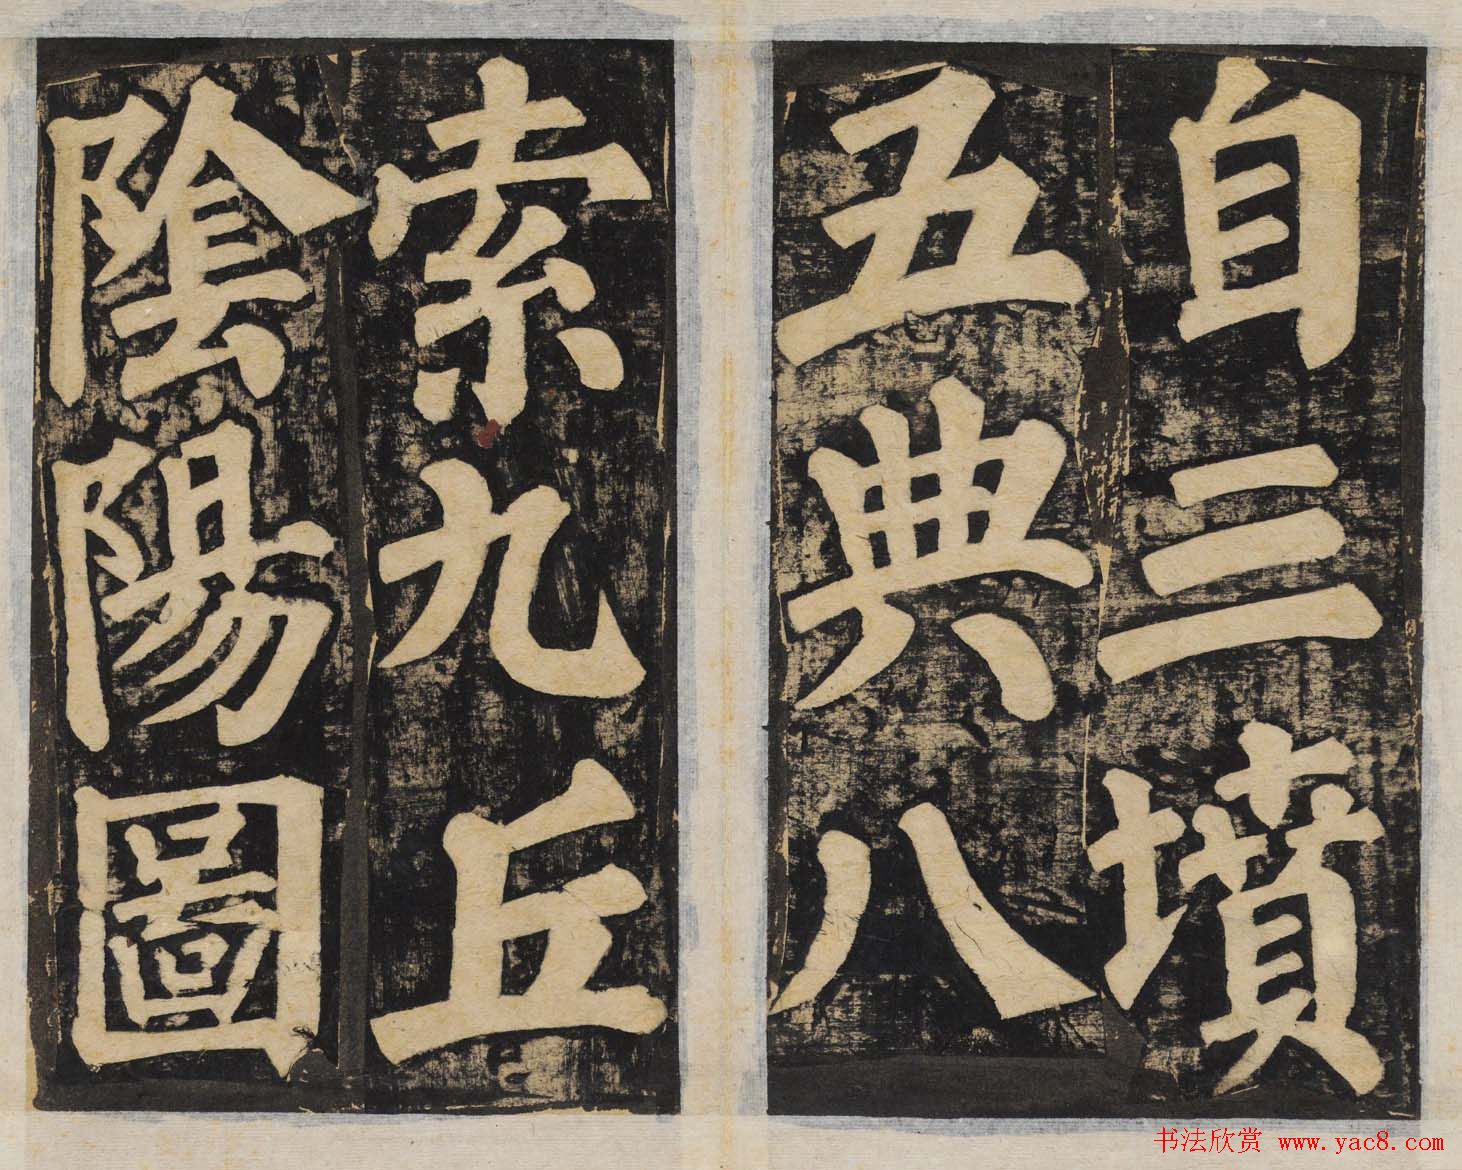 自三墳
五典八
索九丘
陰陽圖
书法欣赏 www.yac8.com